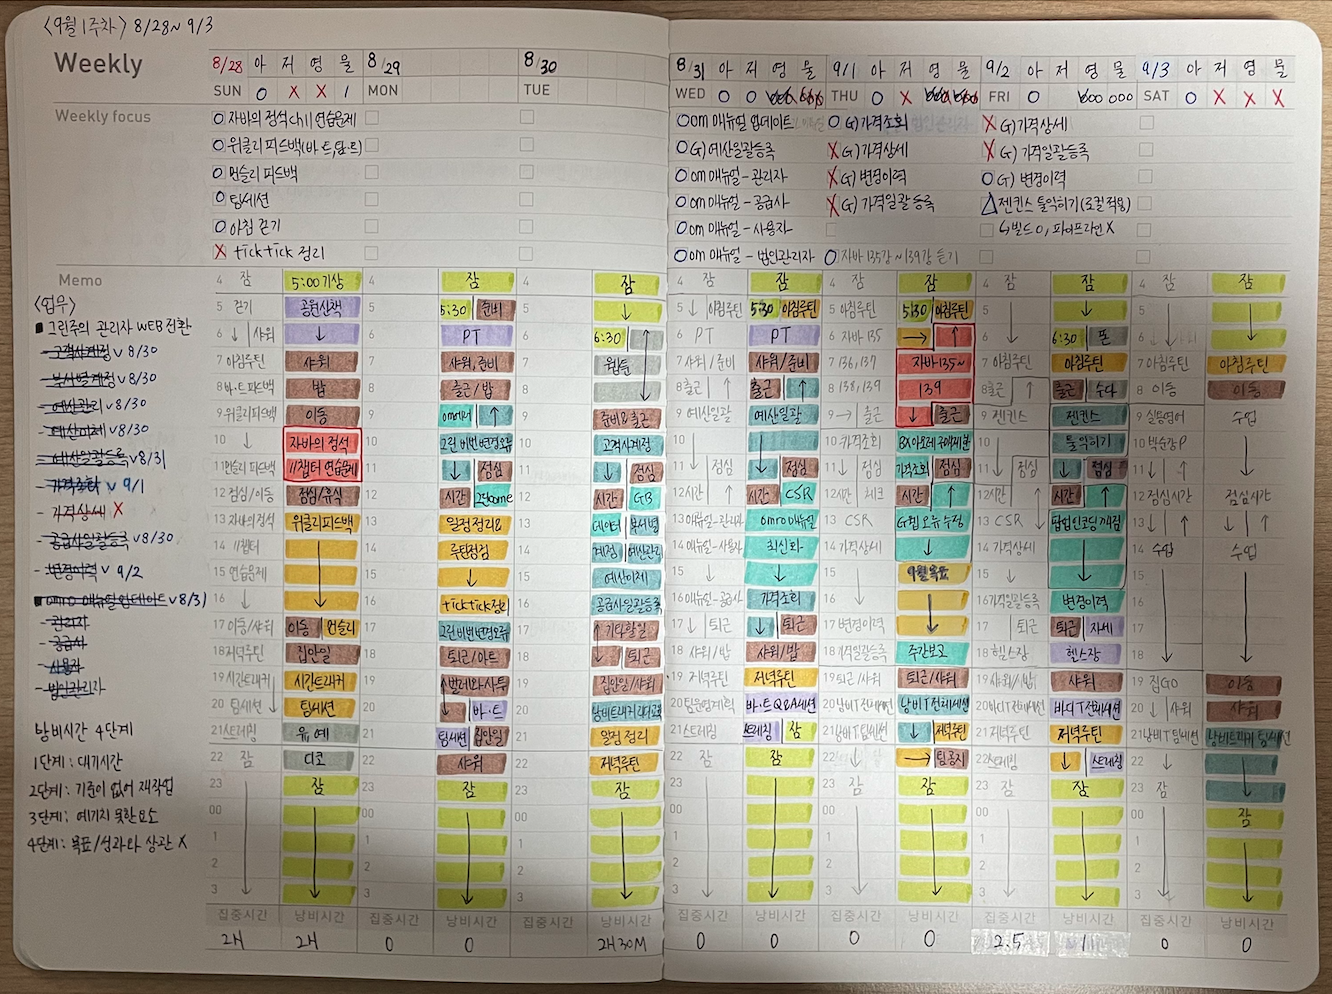 <9월 1주차> 8/28~ 9/3
Weekly
8/28 아 저 영 물
SUN O X X 1
8/29
MON
8/30
TUE
8/31 아 저 영 물
WED O O
9/1 아 저 영 물
THU O X
9/2 아 저 영 물
FRI O
9/3 아 저 영 물
SAT O X X X
Weekly focus
O 자바의 정석 ch11 연습문제
O 위클리 피드백(바·트,담·트)
O 먼슬리 피드백
O 팀세션
O 아침 걷기
X ticktick 정리
O om 매뉴얼 업데이트
O G) 예산일괄등록
O om 매뉴얼 - 관리자
O om 매뉴얼 - 공급사
O om 매뉴얼 - 사용자
O om 매뉴얼 - 법인관리자
O G) 가격조회
X G) 가격상세
X G) 변경이력
X G) 가격일괄등록
O 자바 135강 ~ 139강 듣기
X G) 가격상세
X G) 가격일괄등록
O G) 변경이력
△ 젠킨스 툴익히기 (로컬 적용)
↳ 빌드 O, 파이프라인 X
Memo
<업무>
■ 그린주의 관리자 WEB 전환
- 고객사계정 v 8/30
- 부서별계정 v 8/30
- 예산관리 v 8/30
- 예산이체 v 8/30
- 예산일괄등록 v 8/31
- 가격조회 v 9/1
- 가격상세 X
- 공급사일괄등록 v 8/30
- 변경이력 v 9/2
■ omro 매뉴얼 업데이트 v 8/31
- 관리자
- 공급사
- 사용자
- 법인관리자
낭비시간 4단계
1단계: 대기시간
2단계: 기준이 없어 재작업
3단계: 예기치 못한 요소
4단계: 목표/성과와 상관 X
4 잠 5:00 기상
5 걷기 공원산책
6 ↓ 샤워 ↓
7 아침루틴 샤워
8 바·트 피드백 밥
9 위클리피드백 이동
10 ↓ 자바의 정석
11 먼슬리 피드백 11챕터 연습문제
12 점심/이동 점심/휴식
13 자바의정석 위클리피드백
14 11챕터
15 연습문제
16 ↓
17 이동/샤워 이동 먼슬리
18 저녁루틴 집안일
19 시간트래커 시간트래커
20 팀세션 팀세션
21 스트레칭 유예
22 잠 디코
23 잠
00
1
2
3
집중시간 낭비시간
2H 2H
4 잠
5 5:30 준비
6 PT
7 샤워/준비
8 출근/밥
9 ↑
10
11 ↓ 점심
12 시간
13 일정정리&
14 루틴정검
15 ↓
16 ticktick정리
17
18 퇴근/마트
19
20 바·트
21 팀세션 집안일
22 샤워
23 잠
00
1
2
3
집중시간 낭비시간
0 0
4 잠
5 ↓
6 6:30
7
8
9 준비&출근
10 고객사계정
11 ↓ 점심
12 시간 GB
13 데이터 부서별
14 계정 예산관리
15 예산이체
16 공급사일괄등록
17 기타할일
18 퇴근
19 집안일/샤워
20
21 일정 정리
22 저녁루틴
23 잠
00
1
2
3
집중시간 낭비시간
2H 30M
4 잠 잠
5 ↓ 아침루틴 5:30 아침루틴
6 PT PT
7 샤워/준비 샤워/준비
8 출근 ↑ 출근 ↑
9 예산일괄 예산일괄
10
11 ↓ 점심 ↓ 점심
12 시간 ↑ 시간 CSR
13 매뉴얼-관리자 omro매뉴얼
14 매뉴얼-사용자 최신화
15 ↓ ↓
16 매뉴얼-공급사 가격조회
17 ↓ 퇴근 ↓ 퇴근
18 샤워/밥 샤워/밥
19 저녁루틴 저녁루틴
20 바·트 Q&A세션
21 스트레칭 스트레칭 잠
22 잠 잠
23
00
1
2
3
집중시간 낭비시간
0 0
4 잠 잠
5 아침루틴 5:30 아침루틴
6 자바 135 → ↑
7 136,137 자바 135~
8 138,139 139
9 → 출근 ↓ 출근
10 가격조회
11 ↓ 점심 가격조회 점심
12 시간 시간 ↑
13 CSR G웹 오류 수정
14 가격상세 ↓
15 9월 목표
16 ↓
17 변경이력 ↓
18 가격일괄등록 주간보고
19 퇴근/샤워 퇴근/샤워
20 낭비T전체세션 낭비T전체세션
21 낭비T팀세션 ↓ 저녁루틴
22 ↓ →
23 잠 잠
00
1
2
3
집중시간 낭비시간
0 0
4 잠 잠
5 ↓
6 ↓ 6:30 폰
7 아침루틴 아침루틴
8 출근 ↑ 출근 수다
9 젠킨스 젠킨스
10 툴익히기
11 ↓ 점심 ↓ 점심
12 시간 ↑ 시간 ↑
13 CSR
14 가격상세
15 ↓ ↓
16 가격일괄등록 변경이력
17 퇴근 퇴근 자세
18 헬스장 헬스장
19 샤워/밥 샤워
20 바디T전체세션 바디T전체세션
21 저녁루틴 저녁루틴
22 스트레칭 ↓ 스트레칭
23 잠 잠
00
1
2
3
집중시간 낭비시간
2.5 11
4 잠 잠
5
6 ↓ ↓
7 아침루틴 아침루틴
8 이동 이동
9 실용영어 수업
10
11 ↓ ↑ ↓
12 점심시간 점심시간
13 ↓ ↑ ↓ ↑
14 수업 수업
15
16
17
18 ↓ ↓
19 집GO 이동
20 ↓ 샤워 샤워
21 낭비T팀세션
22 ↓
23 잠 ↓
00 잠
1
2
3
집중시간 낭비시간
0 0